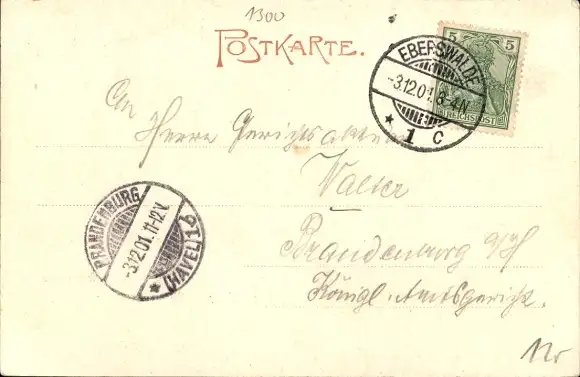 1300
POSTKARTE.
5 5
REICHSPOST
EBERSWALDE
-3.12.01. 3-4 N
* 1 C
An
Herrn Gerichtsaktuar
Walter
Brandenburg a/H
Königl. Amtsgericht.
BRANDENBURG
-3.12.01. 11-12 V.
* (HAVEL) 1 b